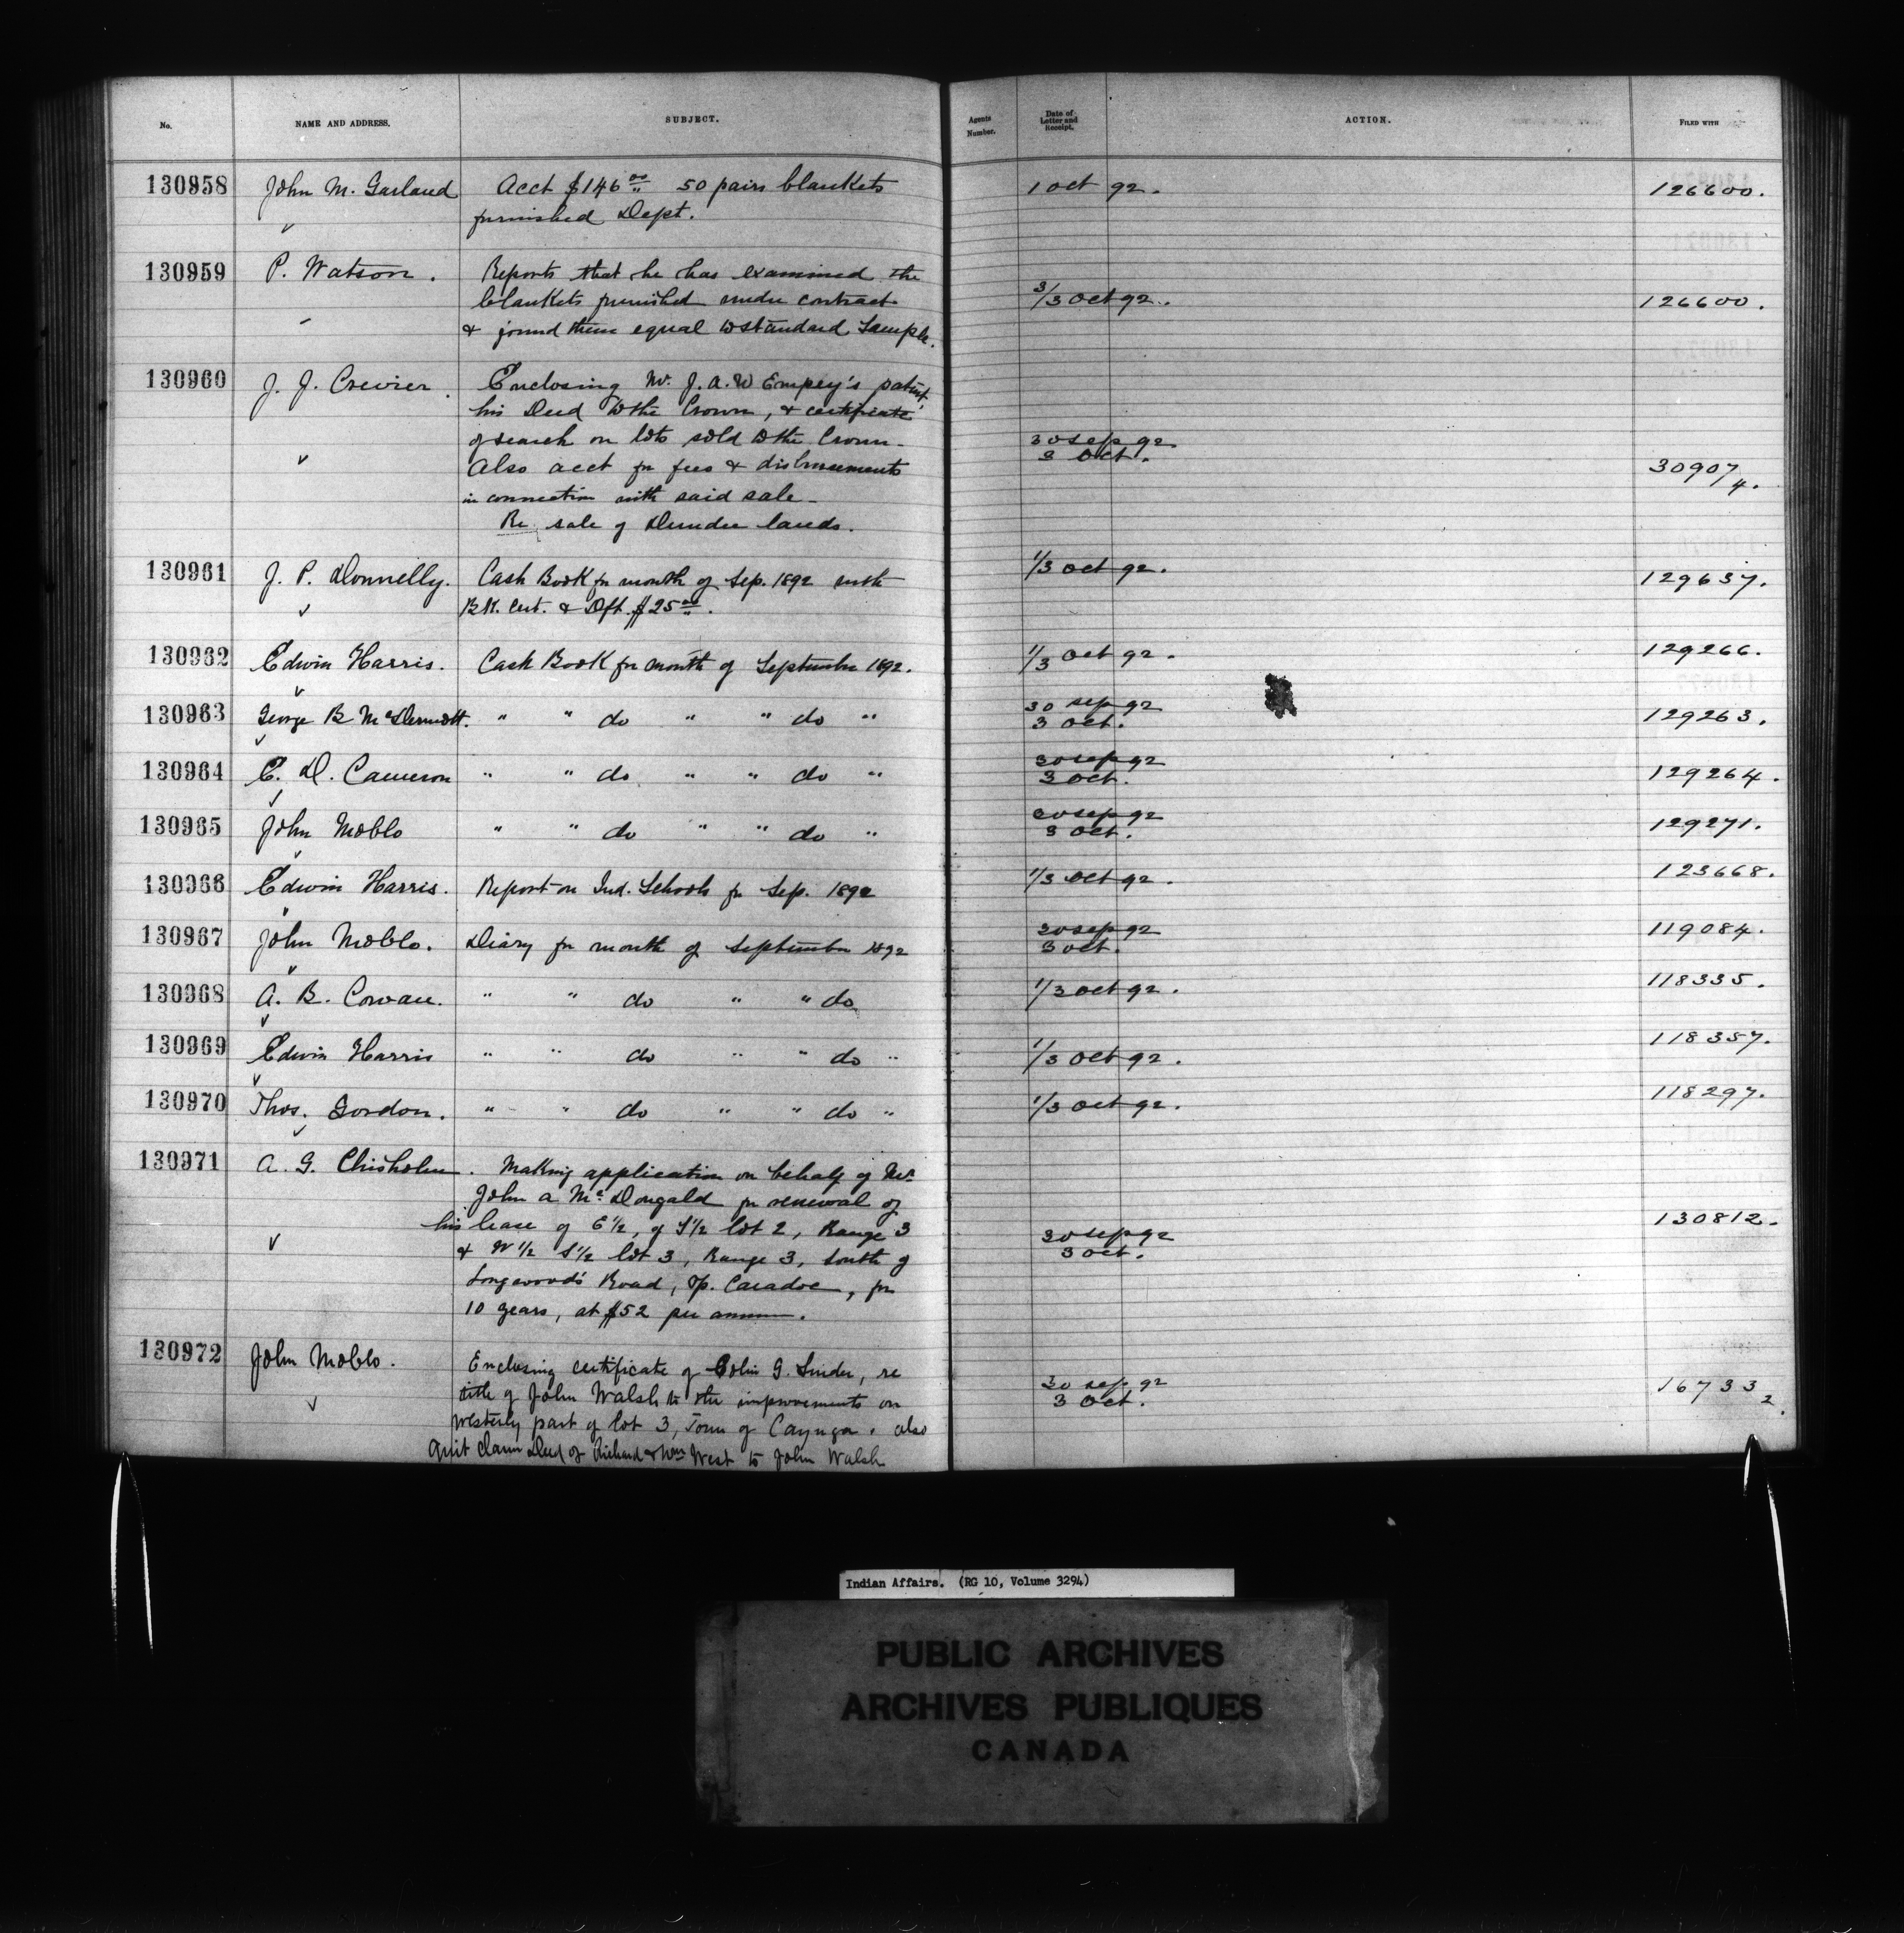 No. NAME AND ADDRESS. SUBJECT. Agents Number. Date of Letter and Receipt. ACTION. FILED WITH
130958 John M. Garland Acct $146 00 50 pairs blankets 1 Oct 92. 126600.
furnished Dept.
130959 P. Watson. Reports that he has examined the
blankets furnished under contract 3/3 Oct 92. 126600.
& found them equal to standard Sample.
130960 J. J. Crevier. Enclosing Mr. J. A. W Empey's patent,
his Deed to the Crown, & certificate
of search on lots sold to the Crown - 30 Sep 92
Also acct for fees & disbursements 3 Oct. 30907/4.
in connection with said sale -
Re sale of Dundee lands.
130961 J. P. Donnelly. Cash Book for month of Sep. 1892 with 1/3 Oct 92. 129637.
BK. Cert. & Dft. $25 00.
130962 Edwin Harris. Cash Book for month of September 1892. 1/3 Oct 92. 129266.
130963 George B McDermott. " " do " " do " 30 Sep 92 3 Oct. 129263.
130964 E. D. Cameron " " do " " do " 30 Sep 92 3 Oct. 129264.
130965 John McOblo " " do " " do " 30 Sep 92 3 Oct. 129271.
130966 Edwin Harris. Report on Ind. Schools for Sep. 1892 1/3 Oct 92. 123668.
130967 John Moblo. Diary for month of September 1892 30 Sep 92 3 Oct. 119084.
130968 A. B. Cowan. " " do " " do 1/3 Oct 92. 118335.
130969 Edwin Harris " " do " " do " 1/3 Oct 92. 118357.
130970 Thos. Gordon. " " do " " do " 1/3 Oct 92. 118297.
130971 A. G. Chisholm. Making application on behalf of Mr.
John A McDougald for renewal of
his lease of E½, of S½ lot 2, Range 3 30 Sep 92 130812.
& W½ S½ lot 3, Range 3, South of 3 Oct.
Longwoods Road, Tp. Caradoc, for
10 years, at $52 per annum.
130972 John Moblo. Enclosing certificate of Colin G. Snider, re
title of John Walsh to the improvements on 30 Sep 92 3 Oct. 16733 2.
westerly part of lot 3, Town of Cayuga. also
Quit Claim Deed of Richard & Wm West to John Walsh
Indian Affairs. (RG 10, Volume 3294)
PUBLIC ARCHIVES
ARCHIVES PUBLIQUES
CANADA